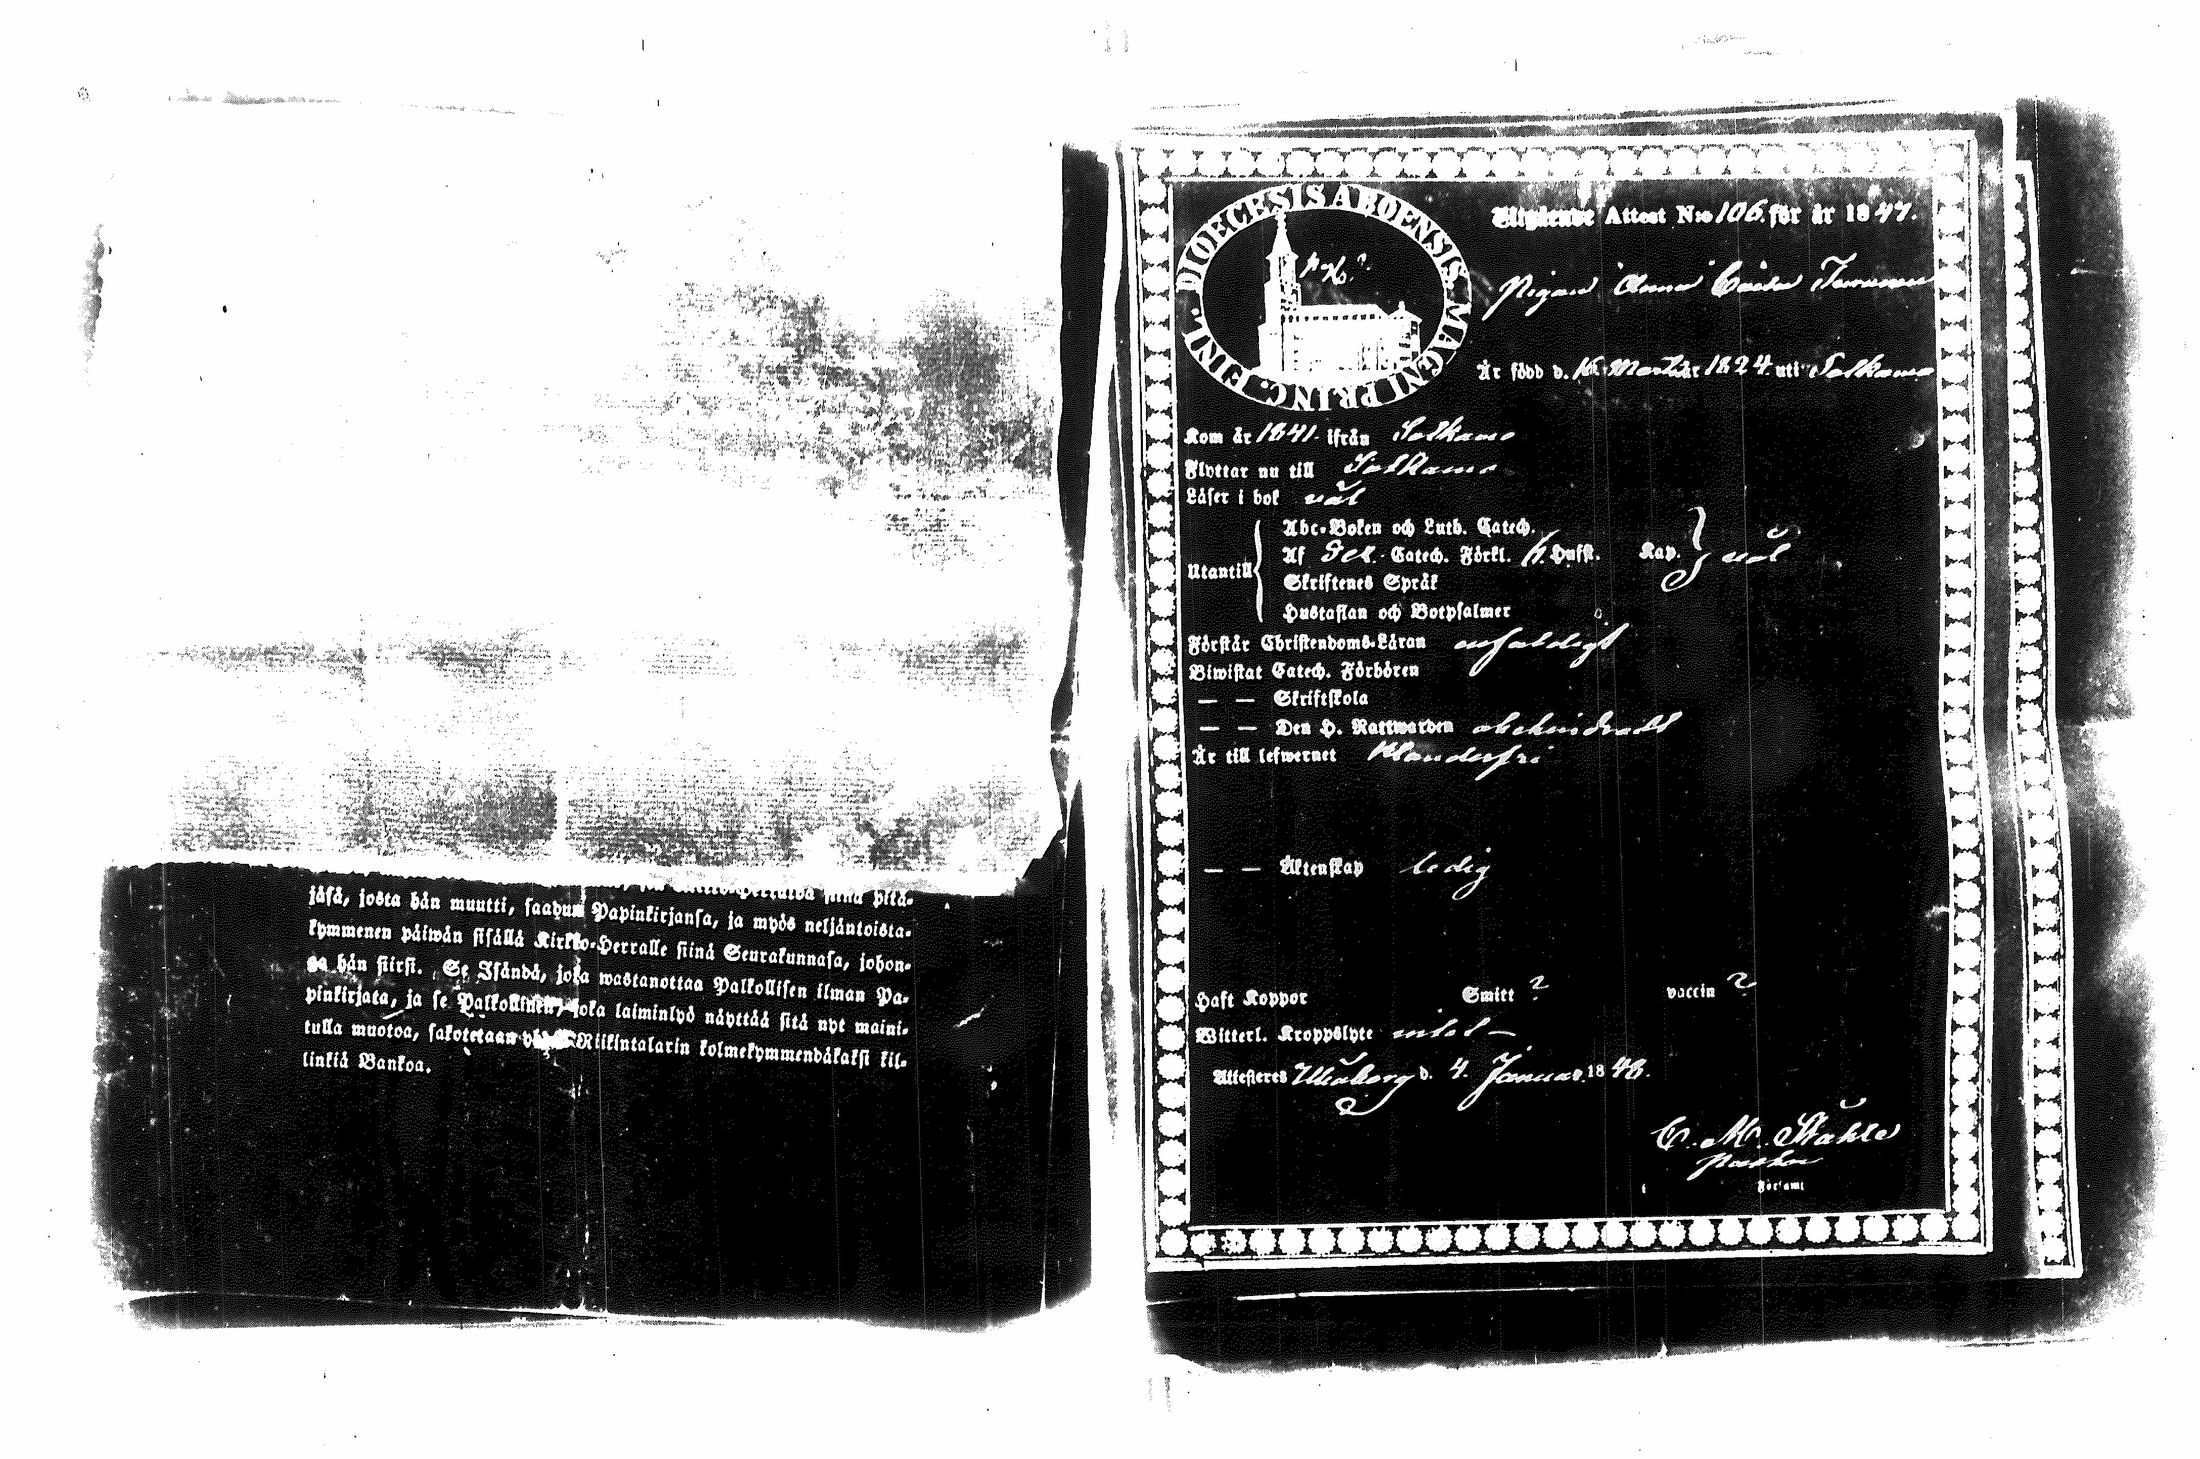 jåså, josta hån muutti, saadun Papinkirjansa, ja myös neljåntoista-
kymmenen påiwån sisållå Kirkko-Herralle siinå Seurakunnasa, johon-
ga hån siirsi. Se Isåndå, joka wastanottaa Palkollisen ilman Pa-
pinkirjata, ja se Palkollinen, joka laiminlyö nåyttåå sitå nyt maini-
tulla muotoa, sakotetaan Riikintalarin kolmekymmendåkaksi kil-
linkiå Bankoa.
DIOECESIS ABOENSIS. MAGNI PRINC. FINL.
Utgående Attest N:o 106. för år 1847.
Pigan Anna
År född d. Martii år 1824. uti Sotkamo
Kom år 1841. ifrån Sotkamo
Flyttar nu till Sotkamo
Låser i bok väl
Utantill
Abc-Boken och Luth. Catech.
Af Catech. Förkl. Hufst. Kap. väl
Skriftenes Språk
Hustaflan och Botpsalmer
Förstår Christendoms-Låran enfaldigt
Biwistat Catech. Förhören
— — Skriftskola
— — Den H. Nattwarden obehindradt
År till lefwernet klanderfri
— — Åktenskap ledig
Haft Koppor Smitt ? vaccin ?
Witterl. Kroppslyte intet —
Attesteres Uleåborg d. 4. Januar. 1848.
C. M. Ståhle
Pastor
Förs:amt